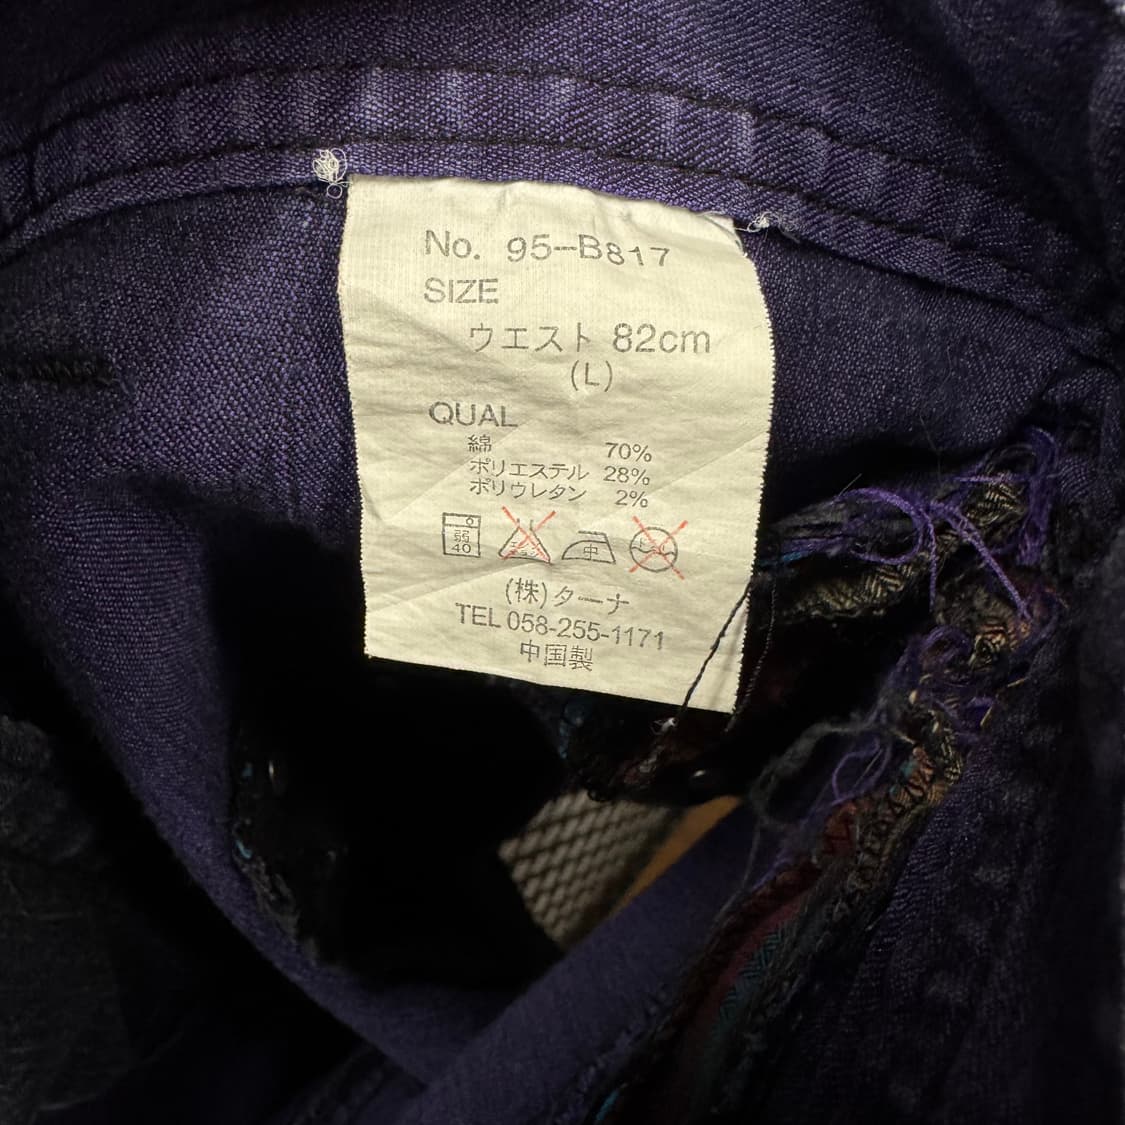 No. 95-B817
SIZE
ウエスト 82cm
(L)
QUAL
綿 70%
ポリエステル 28%
ポリウレタン 2%
弱
40
中
(株)ターナ
TEL 058-255-1171
中国製